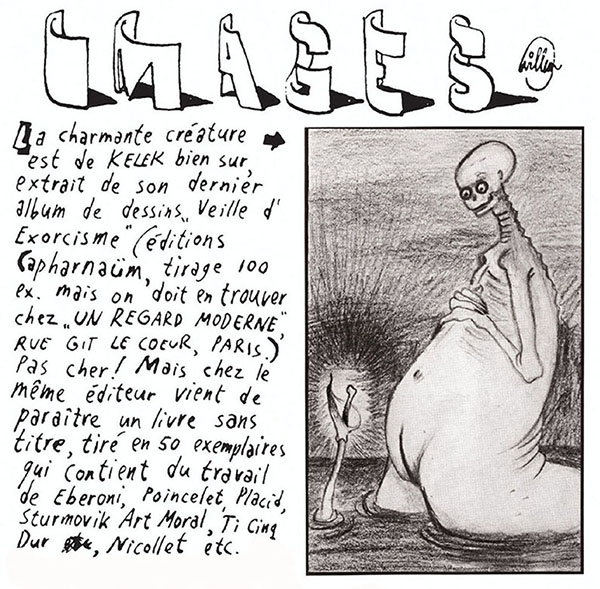 IMAGES
Willem
La charmante créature
est de KELEK bien sur,
extrait de son dernier
album de dessins „Veille d'
Exorcisme" (éditions
Capharnaüm, tirage 100
ex. mais on doit en trouver
chez „UN REGARD MODERNE"
RUE GIT LE COEUR, PARIS.)
Pas cher! Mais chez le
même éditeur vient de
paraître un livre sans
titre, tiré en 50 exemplaires
qui contient du travail
de Eberoni, Poincelet, Placid,
Sturmovik Art Moral, Ti Cinq
Dur, Nicollet etc.